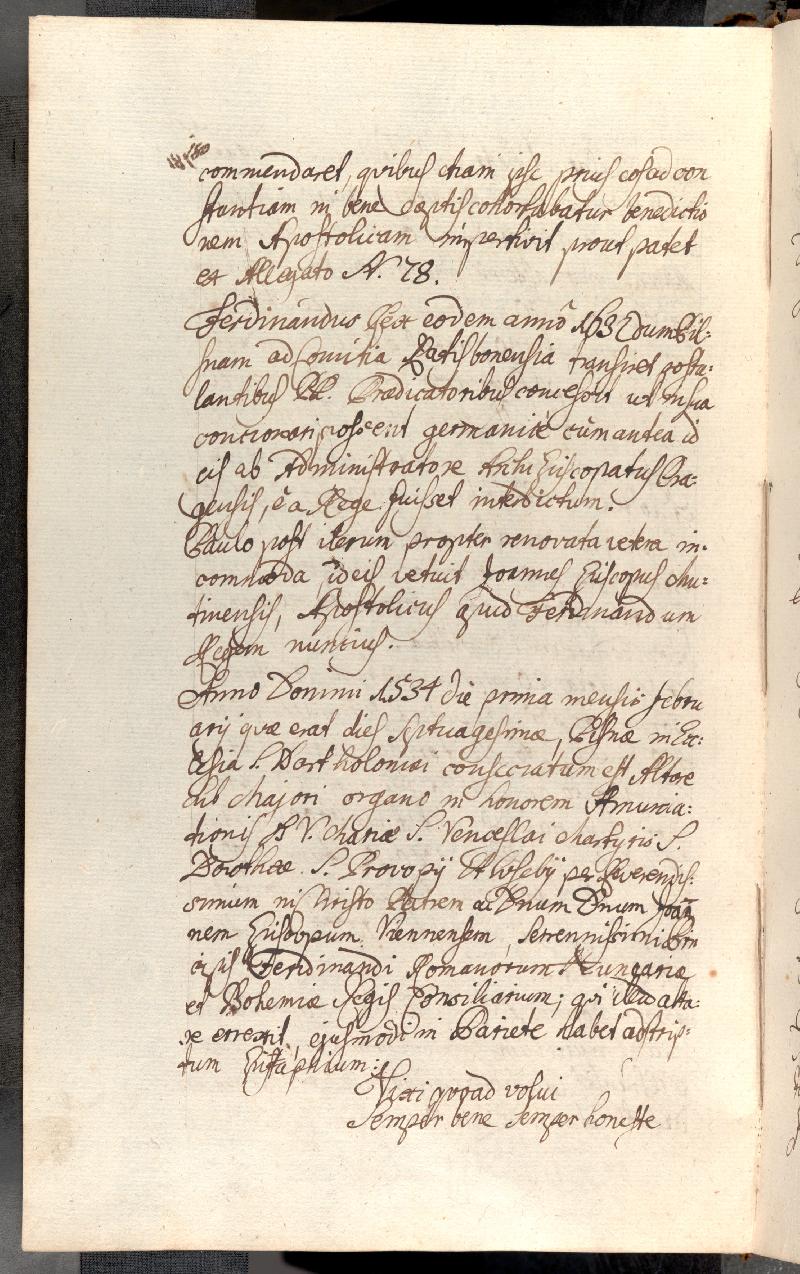 commendaret, quibus etiam ipse prius eos ad con
stantiam in bene cæptis cohortabatur benedictio
nem Apostolicam impertivit prout patet
ex Allegato N. 78.
Ferdinandus Rex eodem anno 1632 dum Pil:
snam ad Comitia Ratisbonensia transiret postu:
lantibus PP. Prædicatoribus concessit ut in sua
concionari possent germanicè cum antea id
eis ab Administratore Archi Episcopatus Pra:
gensis, è a Rege fuisset interdictum.
Paulo post iterum propter renovata vetera in:
commoda, id eis vetuit Joannes Episcopus Mu:
tinensis, Apostolicus apud Ferdinandum
Regem nuncius.
Anno Domini 1534 die prima mensis febru
arij quæ erat dies septuagesimæ, Pilsnæ in Ec:
clesia S. Bartholomæi consecratum est Altare
sub Majori organo in honorem Annuncia:
tionis B V. Mariæ S. Venceslai Martyris S.
Dorotheæ. S. Procopij et Eusebij per Reverendis:
simum in Christo Patrem ac Dnum Dnum Joan
nem Episcopum Viennensem, Serennissimi
Ferdinandi Romanorum Hungariæ
et Bohemiæ Regis Consiliarium; qui illud alta:
re errexit, ejusmodi in Pariete habet adscrip:
tum Epitaphium:
Vixi quoad volui
Semper bene semper honeste